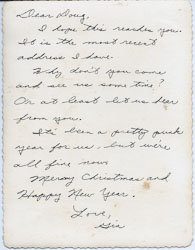 Dear Doug,
I hope this reaches you.
It is the most recent
address I have.
Why don't you come
and see us some time?
Or at least let us hear
from you.
It's been a pretty quick
year for us, but we're
all fine now
Merry Christmas and
Happy New Year.
Love,